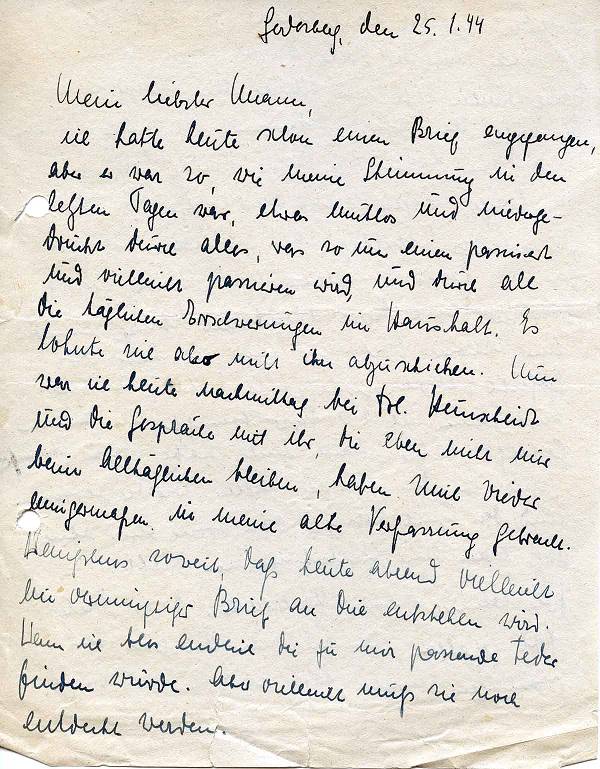 Godesberg, den 25.1.44
Mein liebster Mann,
ich hatte heute schon einen Brief angefangen,
aber er war so, wie meine Stimmung in den
letzten Tagen war, etwas mutlos und niederge-
drückt durch alles, was so um einen passiert
und vielleicht passieren wird, und durch all
die täglichen Erschwerungen im Haushalt. Es
lohnte sich aber nicht ihn abzuschicken. Nun
war ich heute nachmittag bei Frl. Heinscheidt
und die Gespräche mit ihr, die eben nicht nur
beim Alltäglichen bleiben, haben mich wieder
einigermaßen in meine alte Verfassung gebracht.
Wenigstens soweit, daß heute abend vielleicht
ein vernünftiger Brief an Dich entstehen wird.
Wenn ich blos endlich die zu mir passende Feder
finden würde. Aber vielleicht muß sie noch
entdeckt werden.